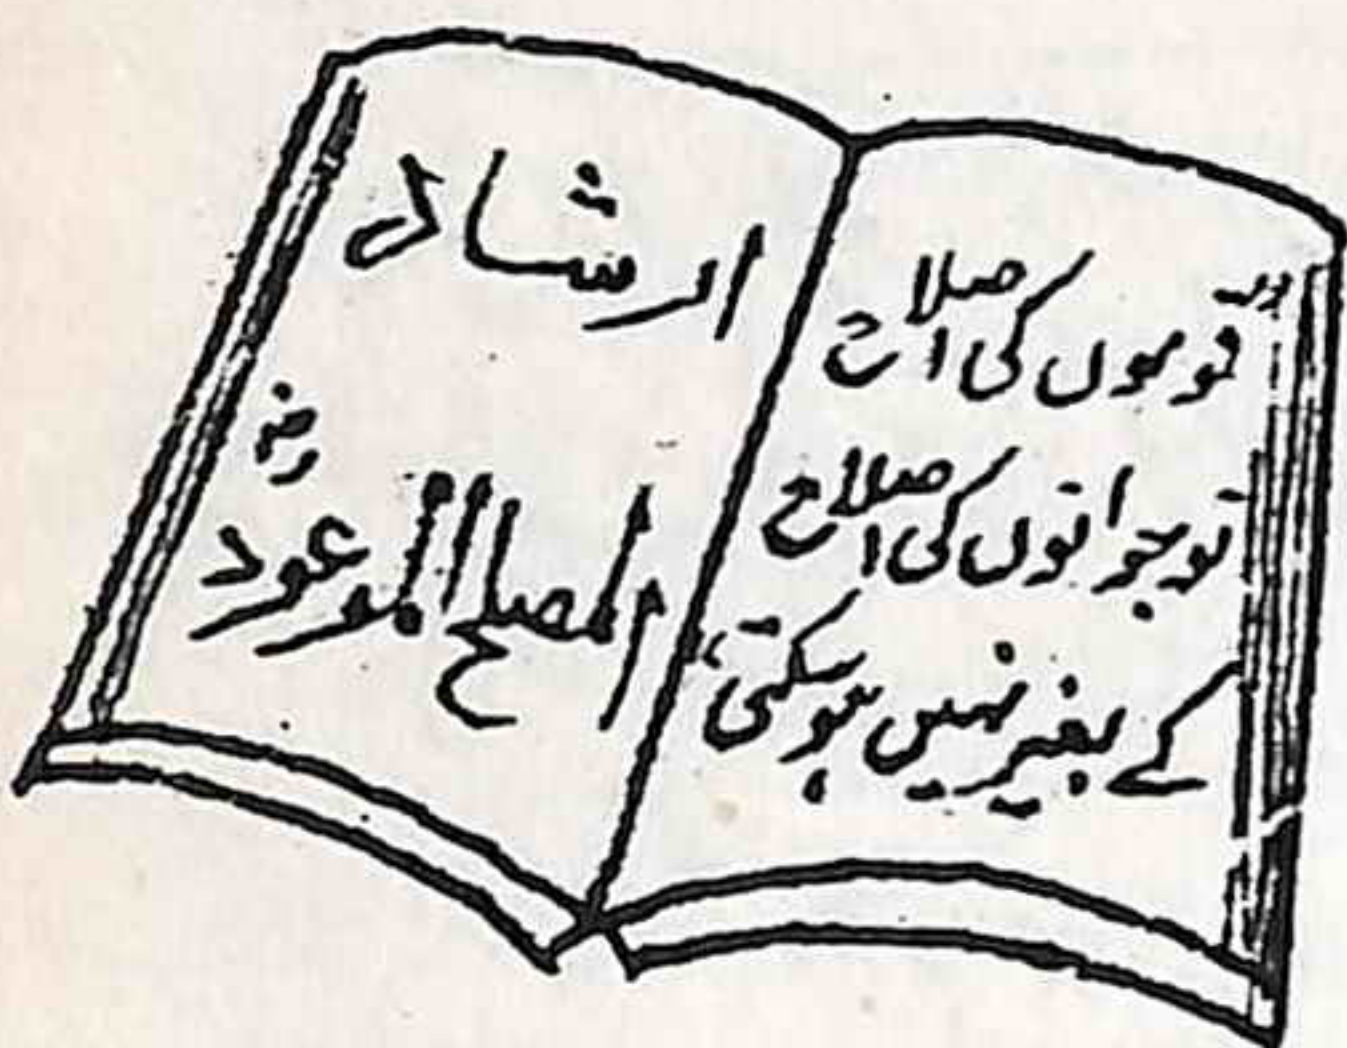 "قوموں کی اصلاح
نوجوانوں کی اصلاح
کے بغیر نہیں ہو سکتی"
ارشاد
المصلح الموعودؓ